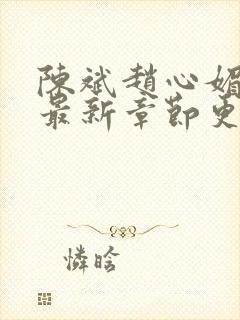 陳斌趙心媚
最新章節更
憐晗